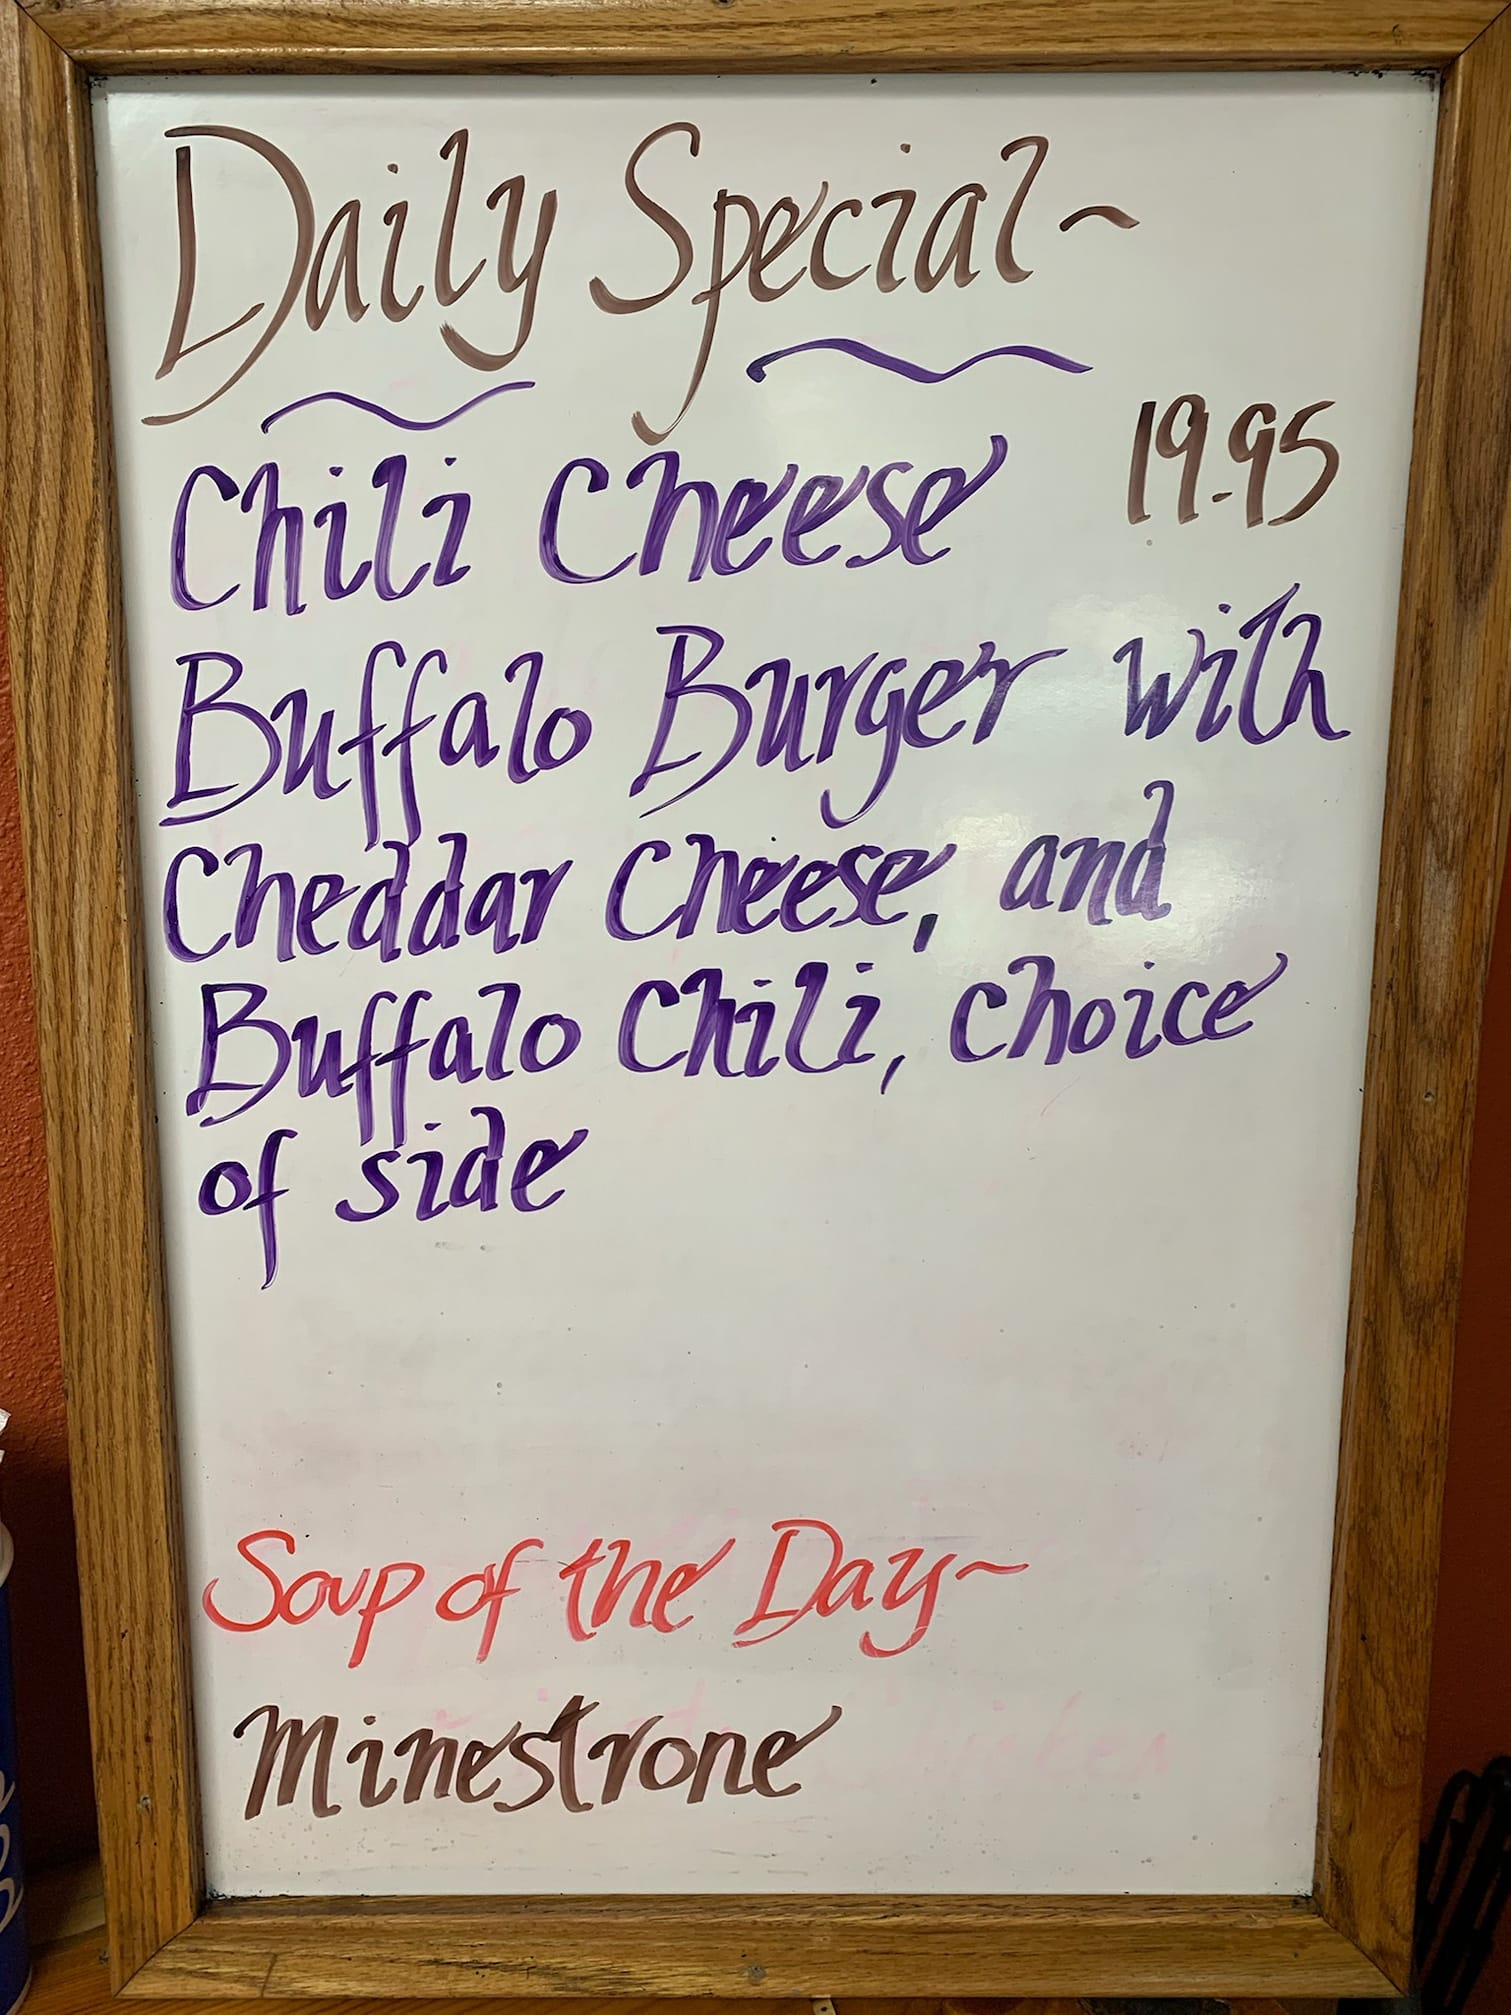 Daily Special~
19.95
Chili Cheese
Buffalo Burger with
Cheddar Cheese, and
Buffalo Chili, choice
of side
Soup of the Day~
Minestrone